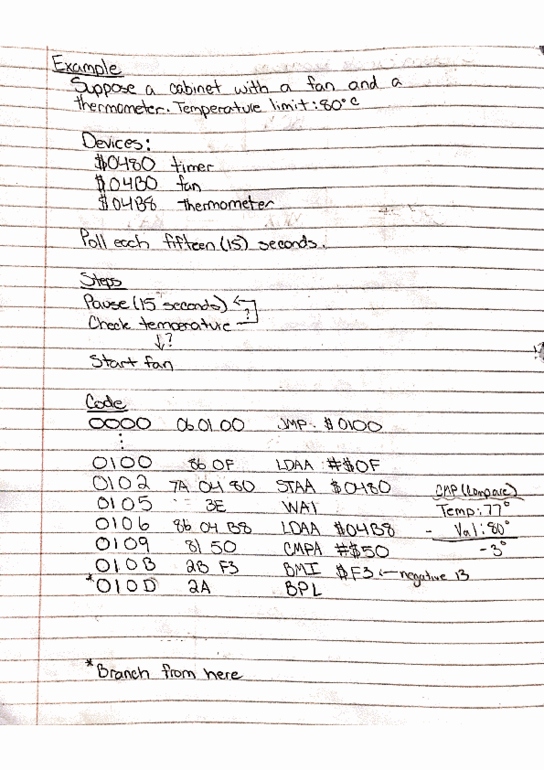 Example
Suppose a cabinet with a fan and a
thermometer. Temperature limit: 80°C
Devices:
$0480 timer
$04B0 fan
$04B8 thermometer
Poll each fifteen (15) seconds.
Steps
Pause (15 seconds)
?
Check temperature
↓?
Start fan
Code
0000 06 01 00 JMP $0100
⋮
0100 86 0F LDAA #$0F
0102 7A 04 80 STAA $0480 CMP (Compare)
0105 3E WAI Temp: 77°
0106 B6 04 B8 LDAA $04B8 - Val: 80°
0109 81 50 CMPA #$50 -3°
010B 2B F3 BMI $F3 ← negative 13
*010D 2A BPL
*Branch from here